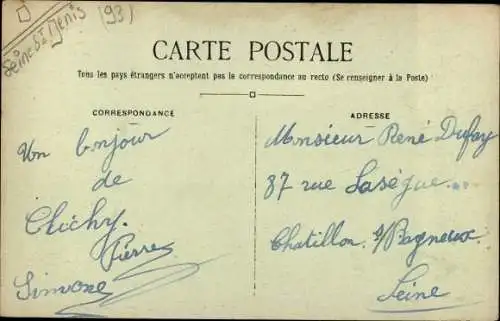 Seine St Denis (93)
CARTE POSTALE
Tous les pays étrangers n'acceptent pas la correspondance au recto (Se renseigner à la Poste)
CORRESPONDANCE
Un bonjour
de
Clichy.
Pierre
Simone
ADRESSE
Monsieur René Dufay
37 rue Lasègue
Chatillon s/Bagneux
Seine